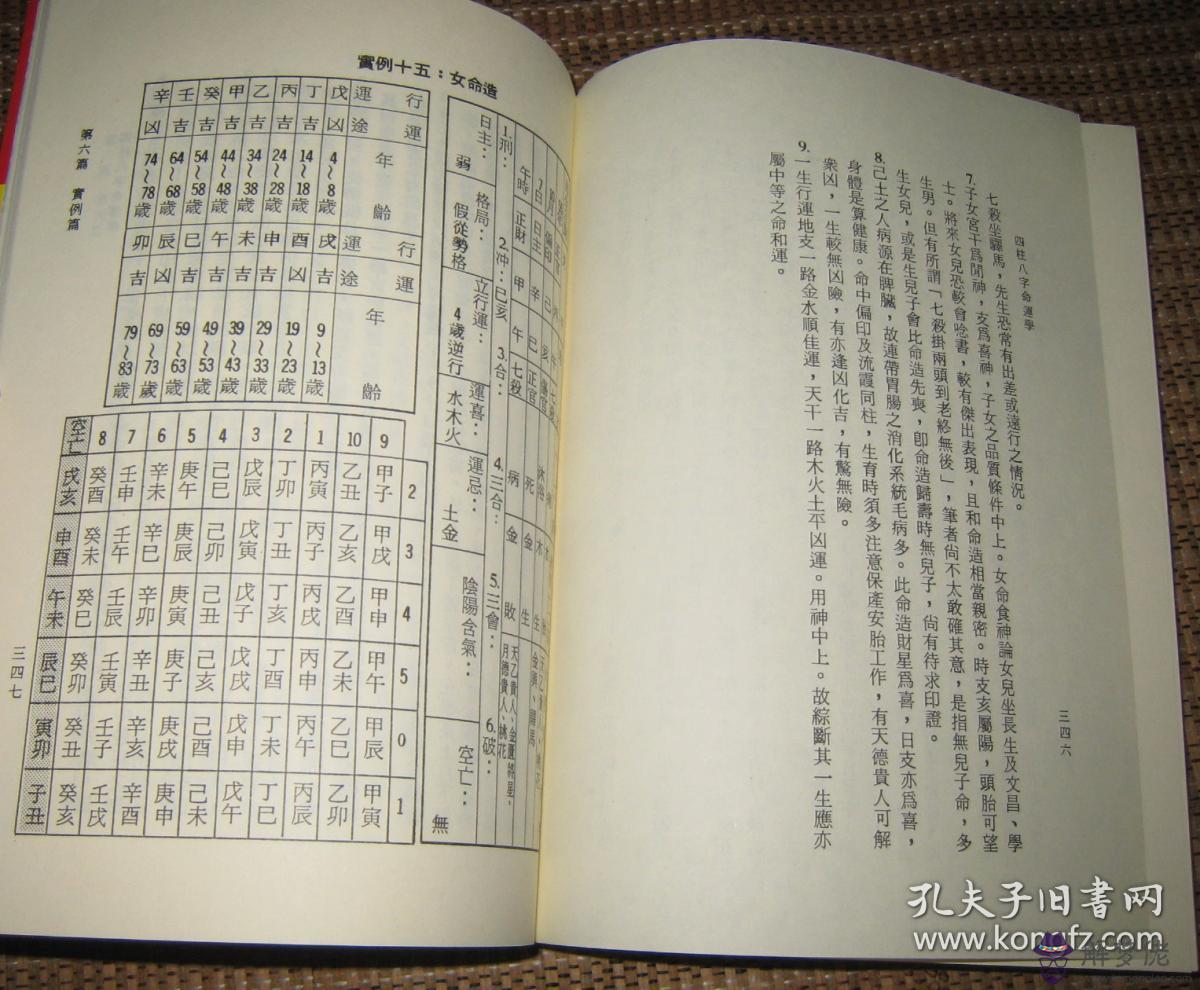 四柱八字命運學
三四六
七殺坐驛馬，先生恐常有出差或遠行之情況。
7.子女宮干爲閒神，支爲喜神，子女之品質條件中上。女命食神論女兒坐長生及文昌、學
士。將來女兒恐較會唸書，較有傑出表現，且和命造相當親密。時支亥屬陽，頭胎可望
生男。但有所謂「七殺掛兩頭到老終無後」，筆者尙不太敢確其意，是指無兒子命，多
生女兒，或是生兒子會比命造先喪，卽命造歸壽時無兒子，尙有待求印證。
8.己土之人病源在脾臟，故連帶胃腸之消化系統毛病多。此命造財星爲喜，日支亦爲喜，
身體是算健康。命中偏印及流霞同柱，生育時須多注意保產安胎工作，有天德貴人可解
衆凶，一生較無凶險，有亦逢凶化吉，有驚無險。
9.一生行運地支一路金水順佳運，天干一路木火土平凶運。用神中上。故綜斷其一生應亦
屬中等之命和運。
實例十五：女命造
日 日主 辛 巳 正官 死 金 生
午時 正財 甲 午 七殺 病 金 敗 天乙貴人、金匱將星、月德貴人、桃花
1.刑： 2.冲：巳亥 3.合： 4.三合： 5.三會： 6.破：
日主：弱 格局：假從勢格 立行運：4歲逆行 運喜：水木火 運忌：土金 陰陽含氣： 空亡：無
辛 壬 癸 甲 乙 丙 丁 戊 行運
凶 吉 吉 吉 吉 吉 吉 凶 運途
74~78歲 64~68歲 54~58歲 44~48歲 34~38歲 24~28歲 14~18歲 4~8歲 年齡
卯 辰 巳 午 未 申 酉 戌 行運
吉 凶 吉 吉 吉 吉 凶 吉 運途
79~83歲 69~73歲 59~63歲 49~53歲 39~43歲 29~33歲 19~23歲 9~13歲 年齡
空亡 8 7 6 5 4 3 2 1 10 9
戌亥 癸酉 壬申 辛未 庚午 己巳 戊辰 丁卯 丙寅 乙丑 甲子 2
申酉 癸未 壬午 辛巳 庚辰 己卯 戊寅 丁丑 丙子 乙亥 甲戌 3
午未 癸巳 壬辰 辛卯 庚寅 己丑 戊子 丁亥 丙戌 乙酉 甲申 4
辰巳 癸卯 壬寅 辛丑 庚子 己亥 戊戌 丁酉 丙申 乙未 甲午 5
寅卯 癸丑 壬子 辛亥 庚戌 己酉 戊申 丁未 丙午 乙巳 甲辰 0
子丑 癸亥 壬戌 辛酉 庚申 己未 戊午 丁巳 丙辰 乙卯 甲寅 1
第六篇 實例篇
三四七
孔夫子旧书网
www.kongfz.com
解梦佬